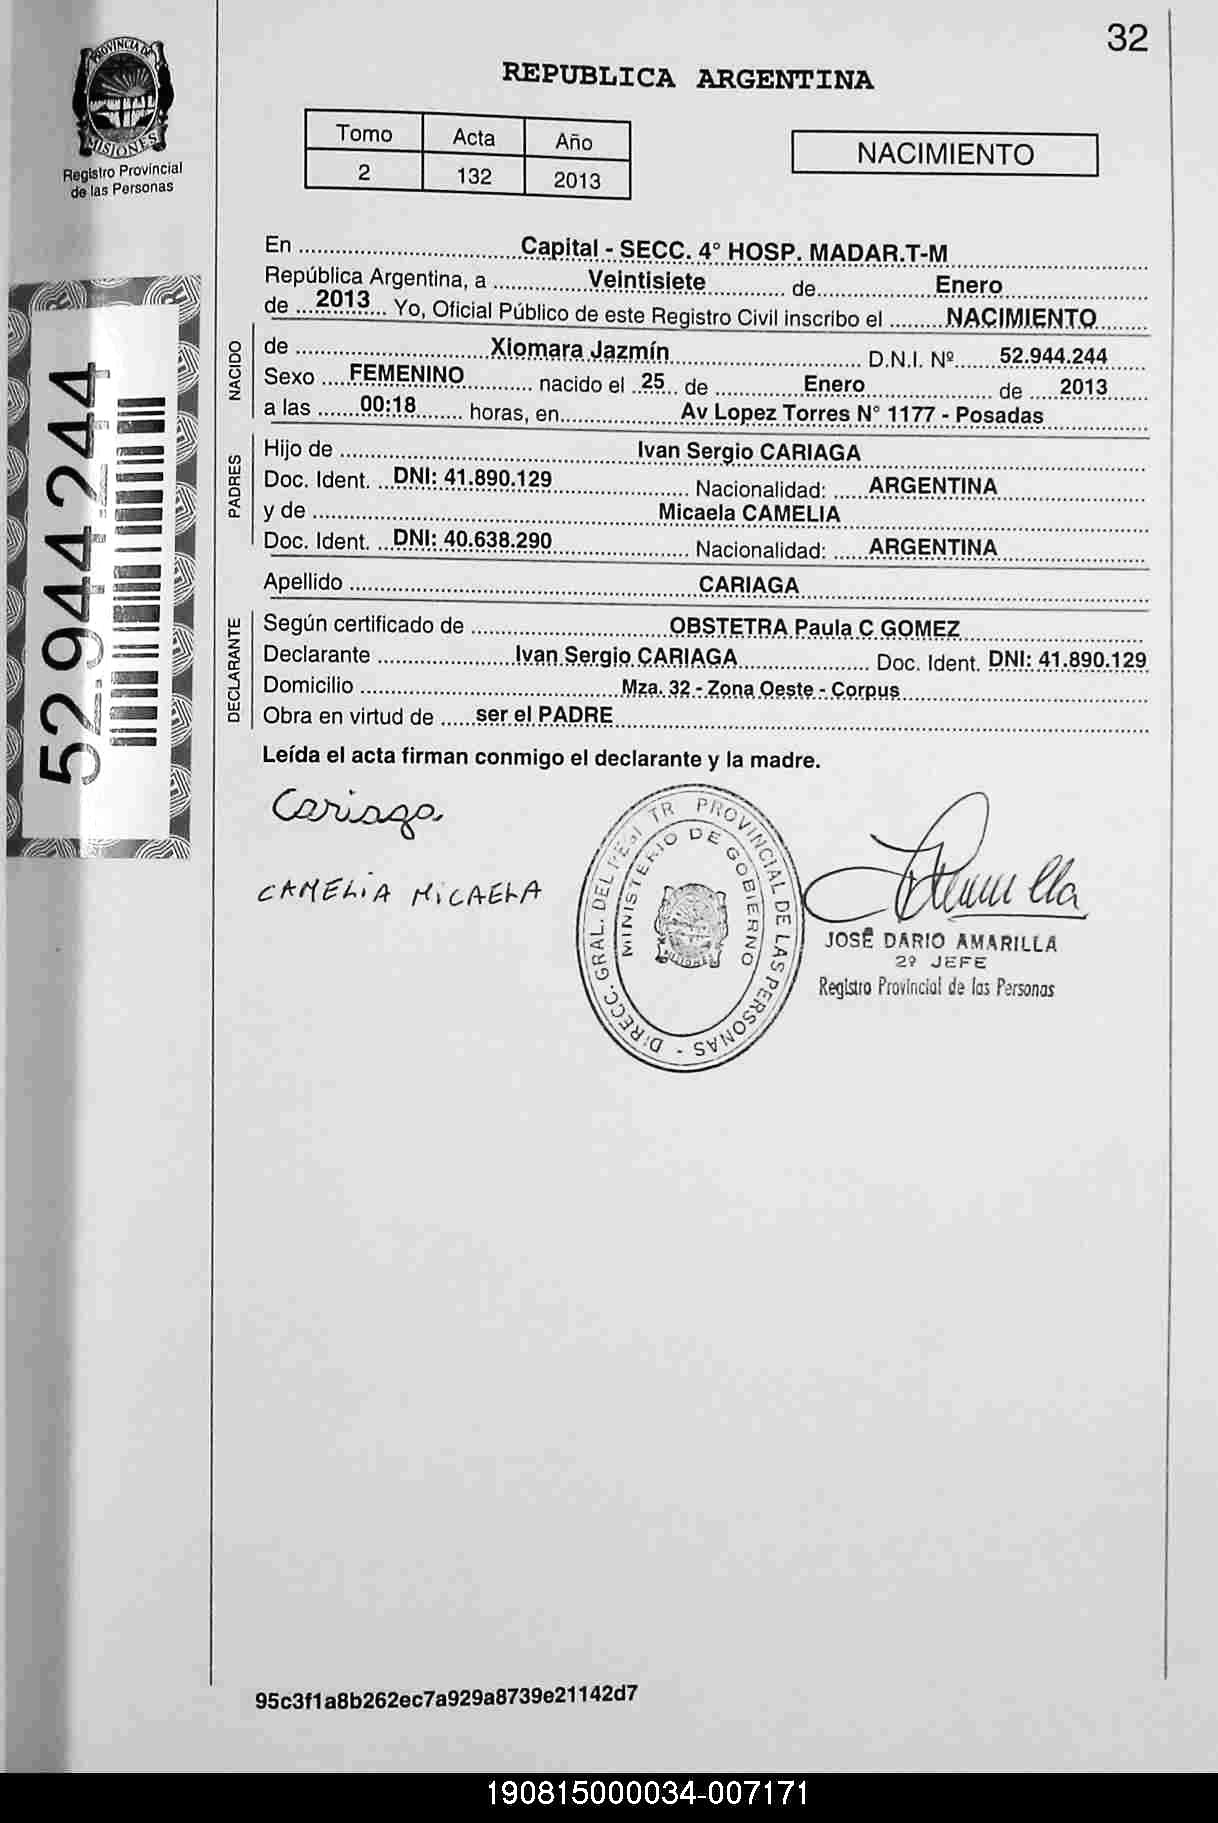 32
PROVINCIA DE
MISIONES
Registro Provincial
de las Personas
REPUBLICA ARGENTINA
Tomo Acta Año
2 132 2013
NACIMIENTO
52.944.244
En ............ Capital - SECC. 4° HOSP. MADAR.T-M ............
República Argentina, a ............ Veintisiete ............ de ............ Enero ............
de ... 2013 ... Yo, Oficial Público de este Registro Civil inscribo el ......... NACIMIENTO .........
NACIDO
de ............ Xiomara Jazmín ............ D.N.I. Nº ...... 52.944.244
Sexo ..... FEMENINO ............ nacido el .. 25 .. de ............ Enero ............ de .... 2013 ......
a las ...... 00:18 ........ horas, en ............ Av Lopez Torres N° 1177 - Posadas ............
PADRES
Hijo de ............ Ivan Sergio CARIAGA ............
Doc. Ident. ... DNI: 41.890.129 ............ Nacionalidad: ...... ARGENTINA ............
y de ............ Micaela CAMELIA ............
Doc. Ident. ... DNI: 40.638.290 ............ Nacionalidad: ...... ARGENTINA ............
Apellido ............ CARIAGA ............
DECLARANTE
Según certificado de ............ OBSTETRA Paula C GOMEZ ............
Declarante ............ Ivan Sergio CARIAGA ............ Doc. Ident. DNI: 41.890.129
Domicilio ............ Mza. 32 - Zona Oeste - Corpus ............
Obra en virtud de ..... ser el PADRE ............
Leída el acta firman conmigo el declarante y la madre.
Cariaga
CAMELIA MICAELA
DIRECC. GRAL. DEL REGISTR PROVINCIAL DE LAS PERSONAS -
MINISTERIO DE GOBIERNO
MISIONES
JOSÉ DARIO AMARILLA
2º JEFE
Registro Provincial de las Personas
95c3f1a8b262ec7a929a8739e21142d7
190815000034-007171